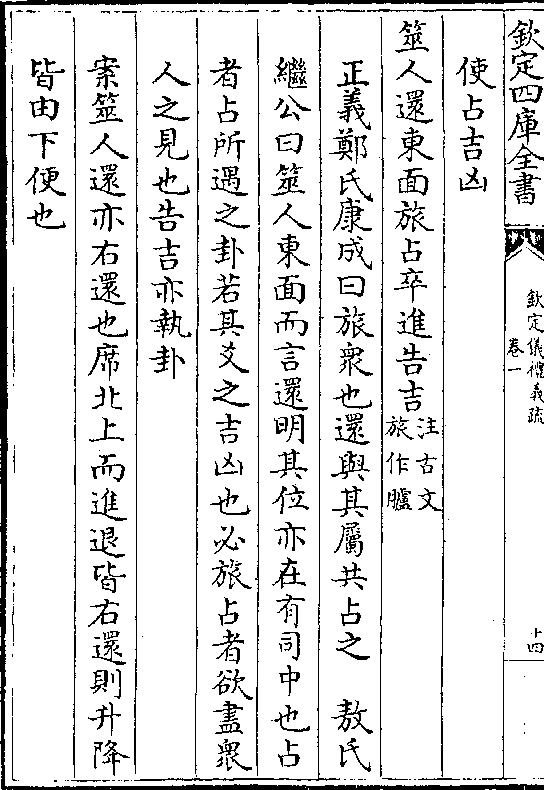 欽定四庫全書
欽定儀禮義疏
卷一
十四
使占吉凶
筮人還東面旅占卒進告吉注古文
旅作臚
正義鄭氏康成曰旅衆也還與其屬共占之　敖氏
繼公曰筮人東面而言還明其位亦在有司中也占
者占所遇之卦若其爻之吉凶也必旅占者欲盡衆
人之見也告吉亦執卦
案筮人還亦右還也席北上而進退皆右還則升降
皆由下便也